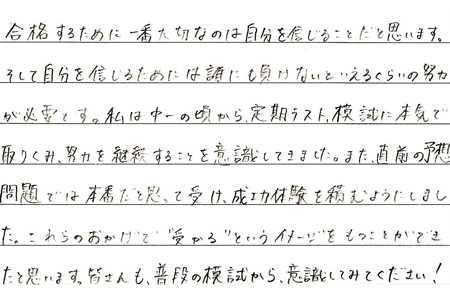 合格するために一番大切なのは自分を信じることだと思います。
そして自分を信じるためには誰にも負けないといえるくらいの努力
が必要です。私は中一の頃から、定期テスト、模試に本気で
取りくみ、努力を継続することを意識してきました。また、直前の予想
問題では本番だと思って受け、成功体験を積むようにしまし
た。これらのおかげで"受かる"というイメージをもつことができ
たと思います。皆さんも、普段の模試から、意識してみてください!